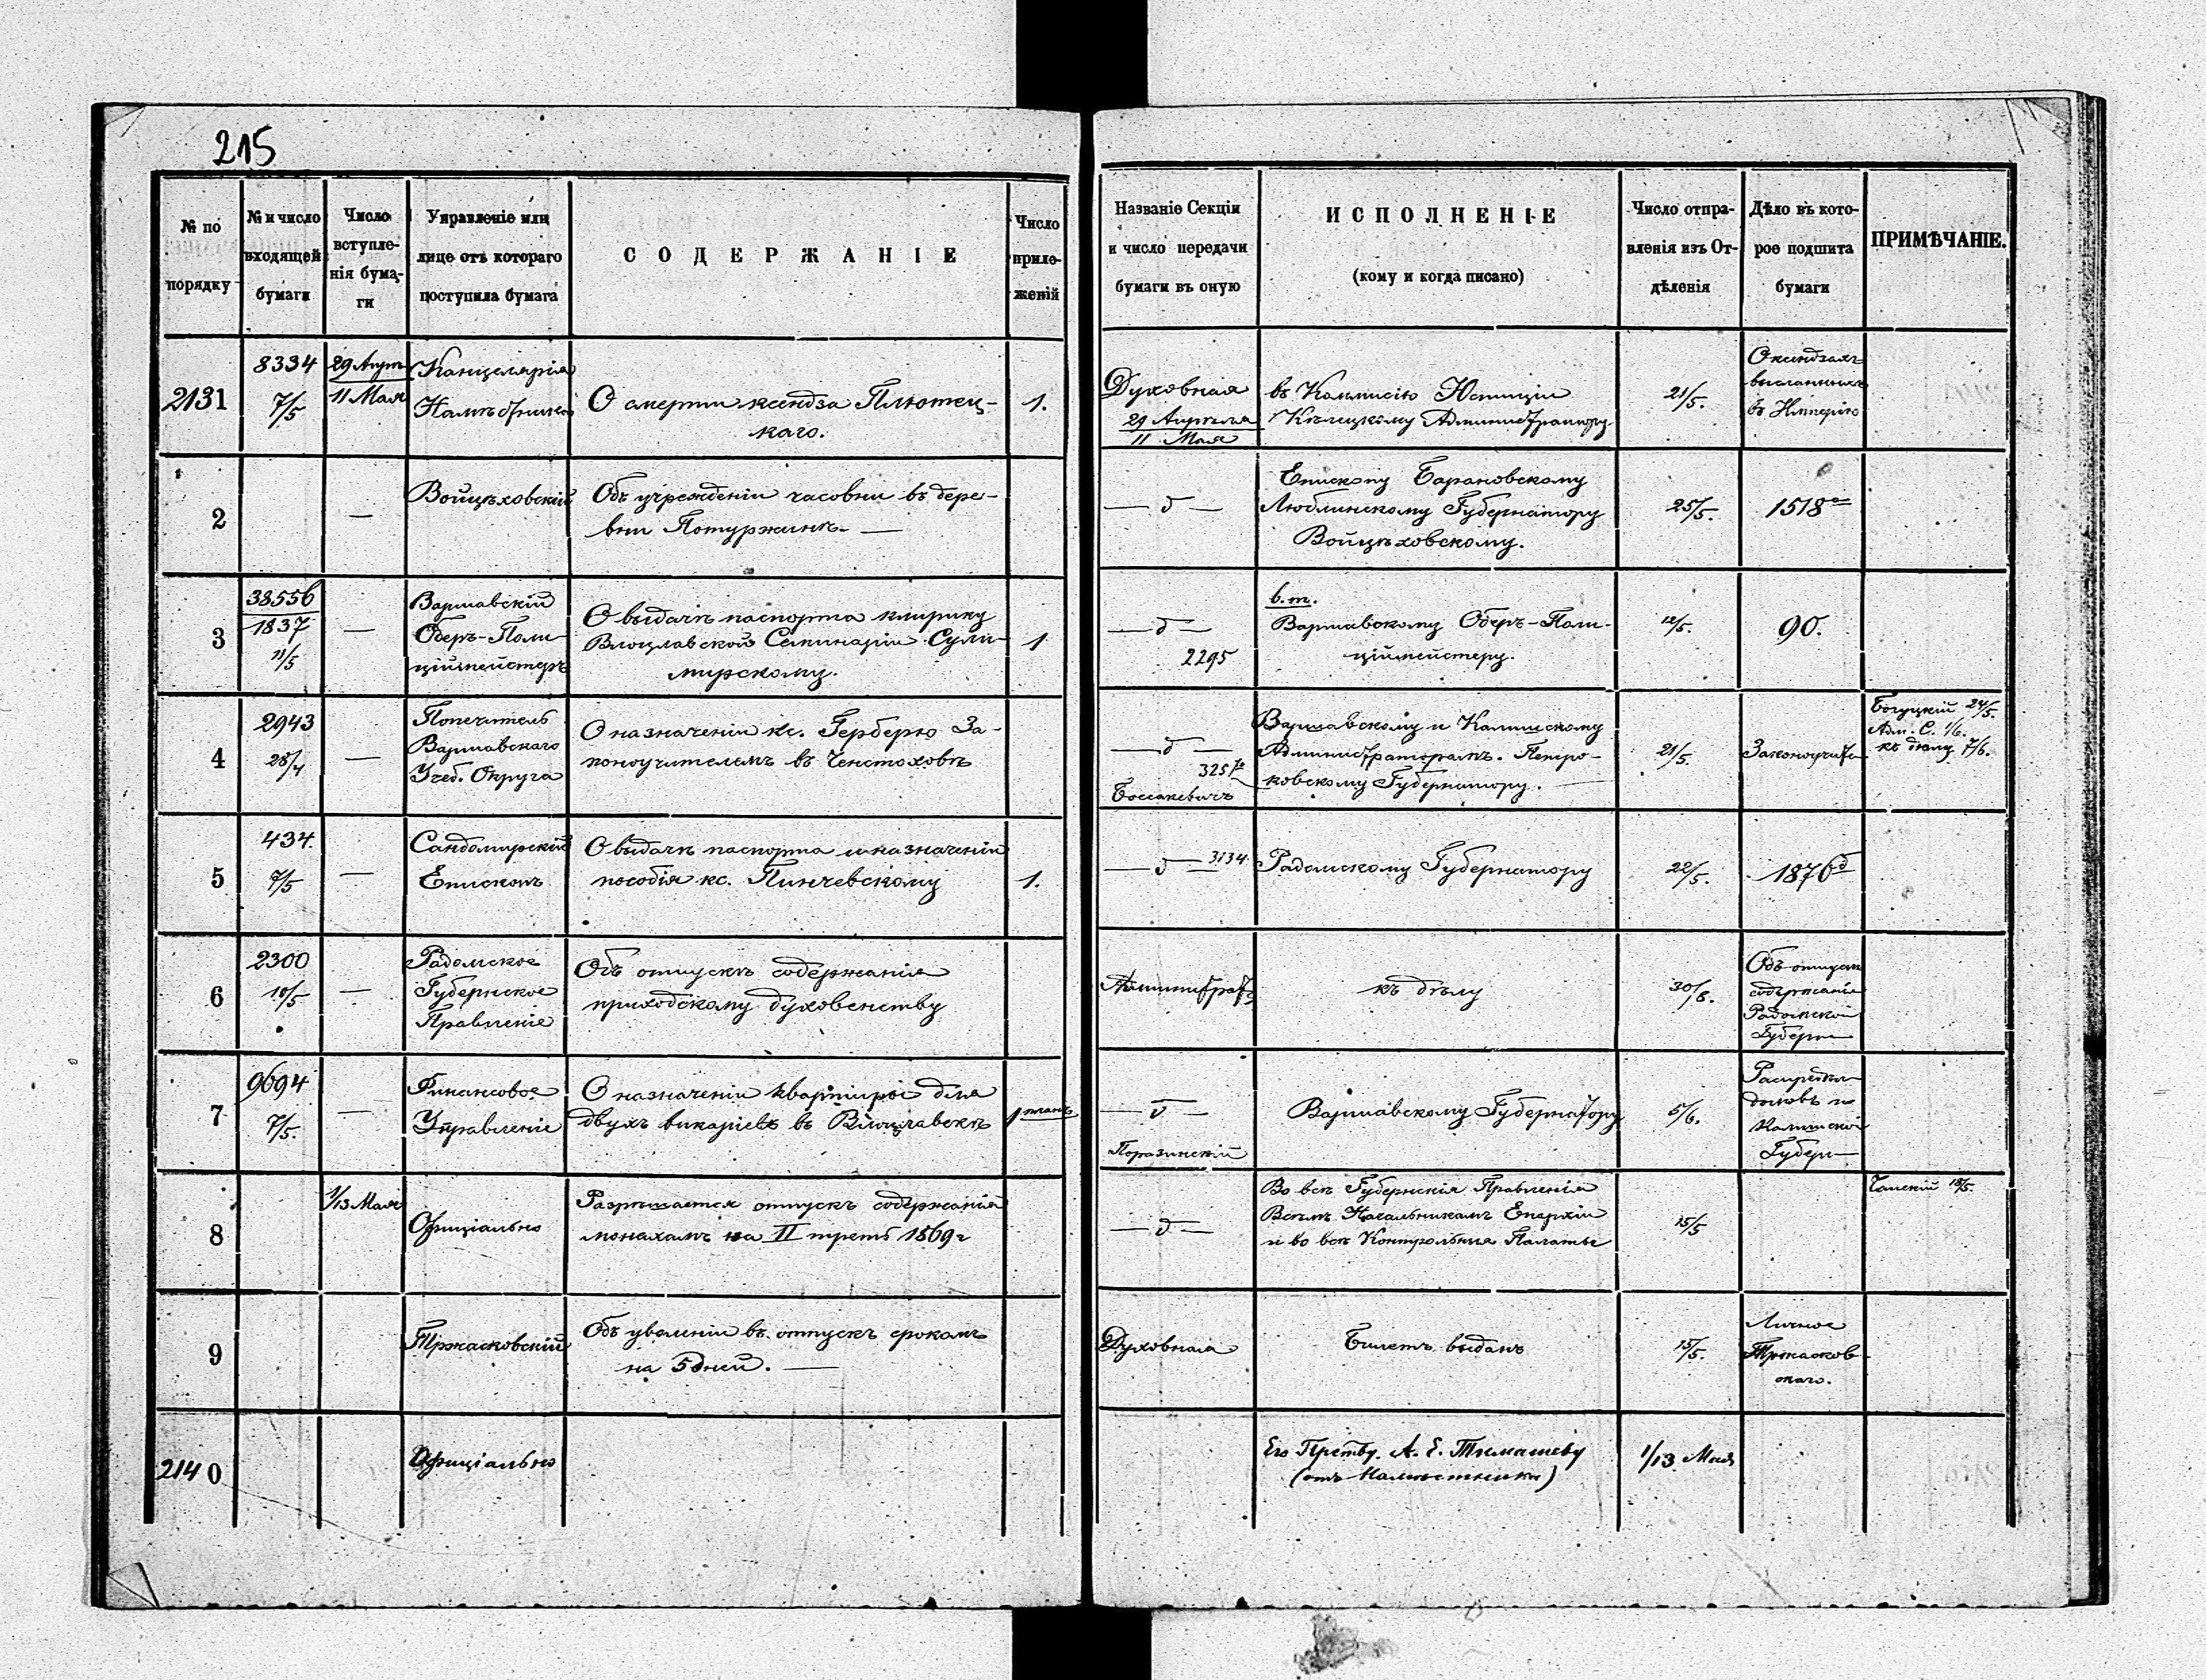 215
№ по порядку
№ и число входящей бумаги
Число вступле-нія бума-ги
Управленіе или лице отъ котораго поступила бумага
СОДЕРЖАНІЕ
Число прило-женій
Названіе Секціи и число передачи бумаги въ оную
ИСПОЛНЕНІЕ
(кому и когда писано)
Число отпра-вленія изъ От-дѣленія
Дѣло въ кото-рое подшита бумаги
ПРИМѢЧАНІЕ.
2131
8334
7/5
29 Апр.
11 Мая
Канцелярія
Намѣстника
О смерти ксендза Плютец-
каго.
1.
Духовная
29 Апрѣля
11 Мая
въ Коммисію Юстиціи
Кѣлецкому Администратору
21/5.
О ксендзахъ
высланныхъ
въ Имперію
2
—
Войцѣховскій
Объ учрежденіи часовни въ дере-
вни Потуржинѣ. —
— д —
Епископу Барановскому
Люблинскому Губернатору
Войцѣховскому.
25/5.
1518
3
38556
1837
11/5
—
Варшавскій
Оберъ-Поли-
ційместеръ
О выдачѣ паспорта клирику
Влоцлавской Семинаріи Сули-
мирскому.
1
— д —
2295
в. т.
Варшавскому Оберъ-Поли-
ціймейстеру.
12/5.
90.
4
2943
28/4
—
Попечитель
Варшавскаго
Учеб. Округа
О назначеніи кс. Герберю За-
коноучителемъ въ Ченстоховѣ
— д —
325
Варшавскому и Калишскому
Администраторамъ. Петро-
ковскому Губернатору. —
21/5.
Законоучит
Богуцкій 24/5.
Адм. С. 1/6.
къ дѣлу 7/6.
5
434.
7/5
—
Сандомирскій
Епископъ
О выдачѣ паспорта и назначеніи
пособія кс. Пинчевскому
1.
— д — 3134
Радомскому Губернатору
22/5.
1876 д
6
2300
10/5
—
Радомское
Губернское
Правленіе
Объ отпускѣ содержанія
приходскому духовенству
Администрат
къ дѣлу
30/8.
Объ отпускѣ
содержанія
Радомской
Губерн
7
9694
7/5.
—
Финансовое
Управленіе
О назначеніи квартиры для
двухъ викаріевъ въ Влоцлавскѣ
1 планъ
— д —
Поразинскій
Варшавскому Губернатору
5/6.
домовъ
Калишской
Губерн
8
1/13 Мая
Офиціально
Разрѣшается отпускъ содержанія
монахамъ на II треть 1869 г
— д —
Во всѣ Губернскія Правленія
Всѣмъ Начальникамъ Епархіи
и во всѣ Контрольныя Палаты
15/5
18/5.
9
Тржасковскій
Объ уволеніи въ отпускъ срокомъ
на 5 дней. —
Духовная
Билетъ выданъ
15/5.
Личное
Тржасков-
скаго.
2140
Офиціально
Его Пр-ству. А. Е. Тимашеву
(отъ Намѣстника)
1/13 Мая